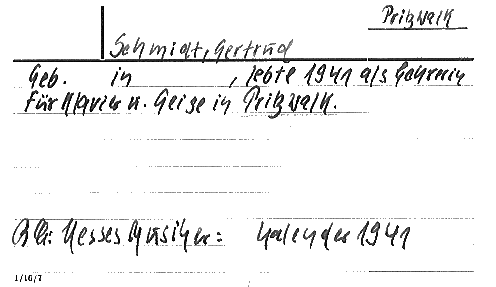 Pritzwalk
Schmidt, Gertrud
Geb. in , lebte 1941 als Lehrerin
für Klavier u. Geige in Pritzwalk.
Qu: Hesses Musiker= Kalender 1941
1/16/7